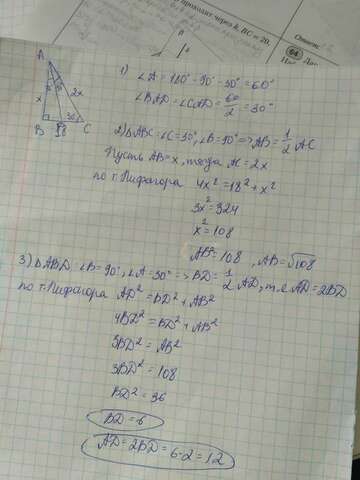 проходит через k, BC = 20.
Ответ:
64
A
x
2x
30
B
18
C
1) ∠A = 180° - 90° - 30° = 60°
∠BAD = ∠CAD = 60/2 = 30°
2) △ABC: ∠C = 30°, ∠B = 90° => AB = 1/2 AC
Пусть AB = x, тогда AC = 2x
по т. Пифагора 4x² = 18² + x²
3x² = 324
x² = 108
AB² = 108, AB = √108
3) △ABD: ∠B = 90°, ∠A = 30° => BD = 1/2 AD, т.е AD = 2BD
по т. Пифагора AD² = BD² + AB²
4BD² = BD² + AB²
3BD² = AB²
3BD² = 108
BD² = 36
BD = 6
AD = 2BD = 6·2 = 12